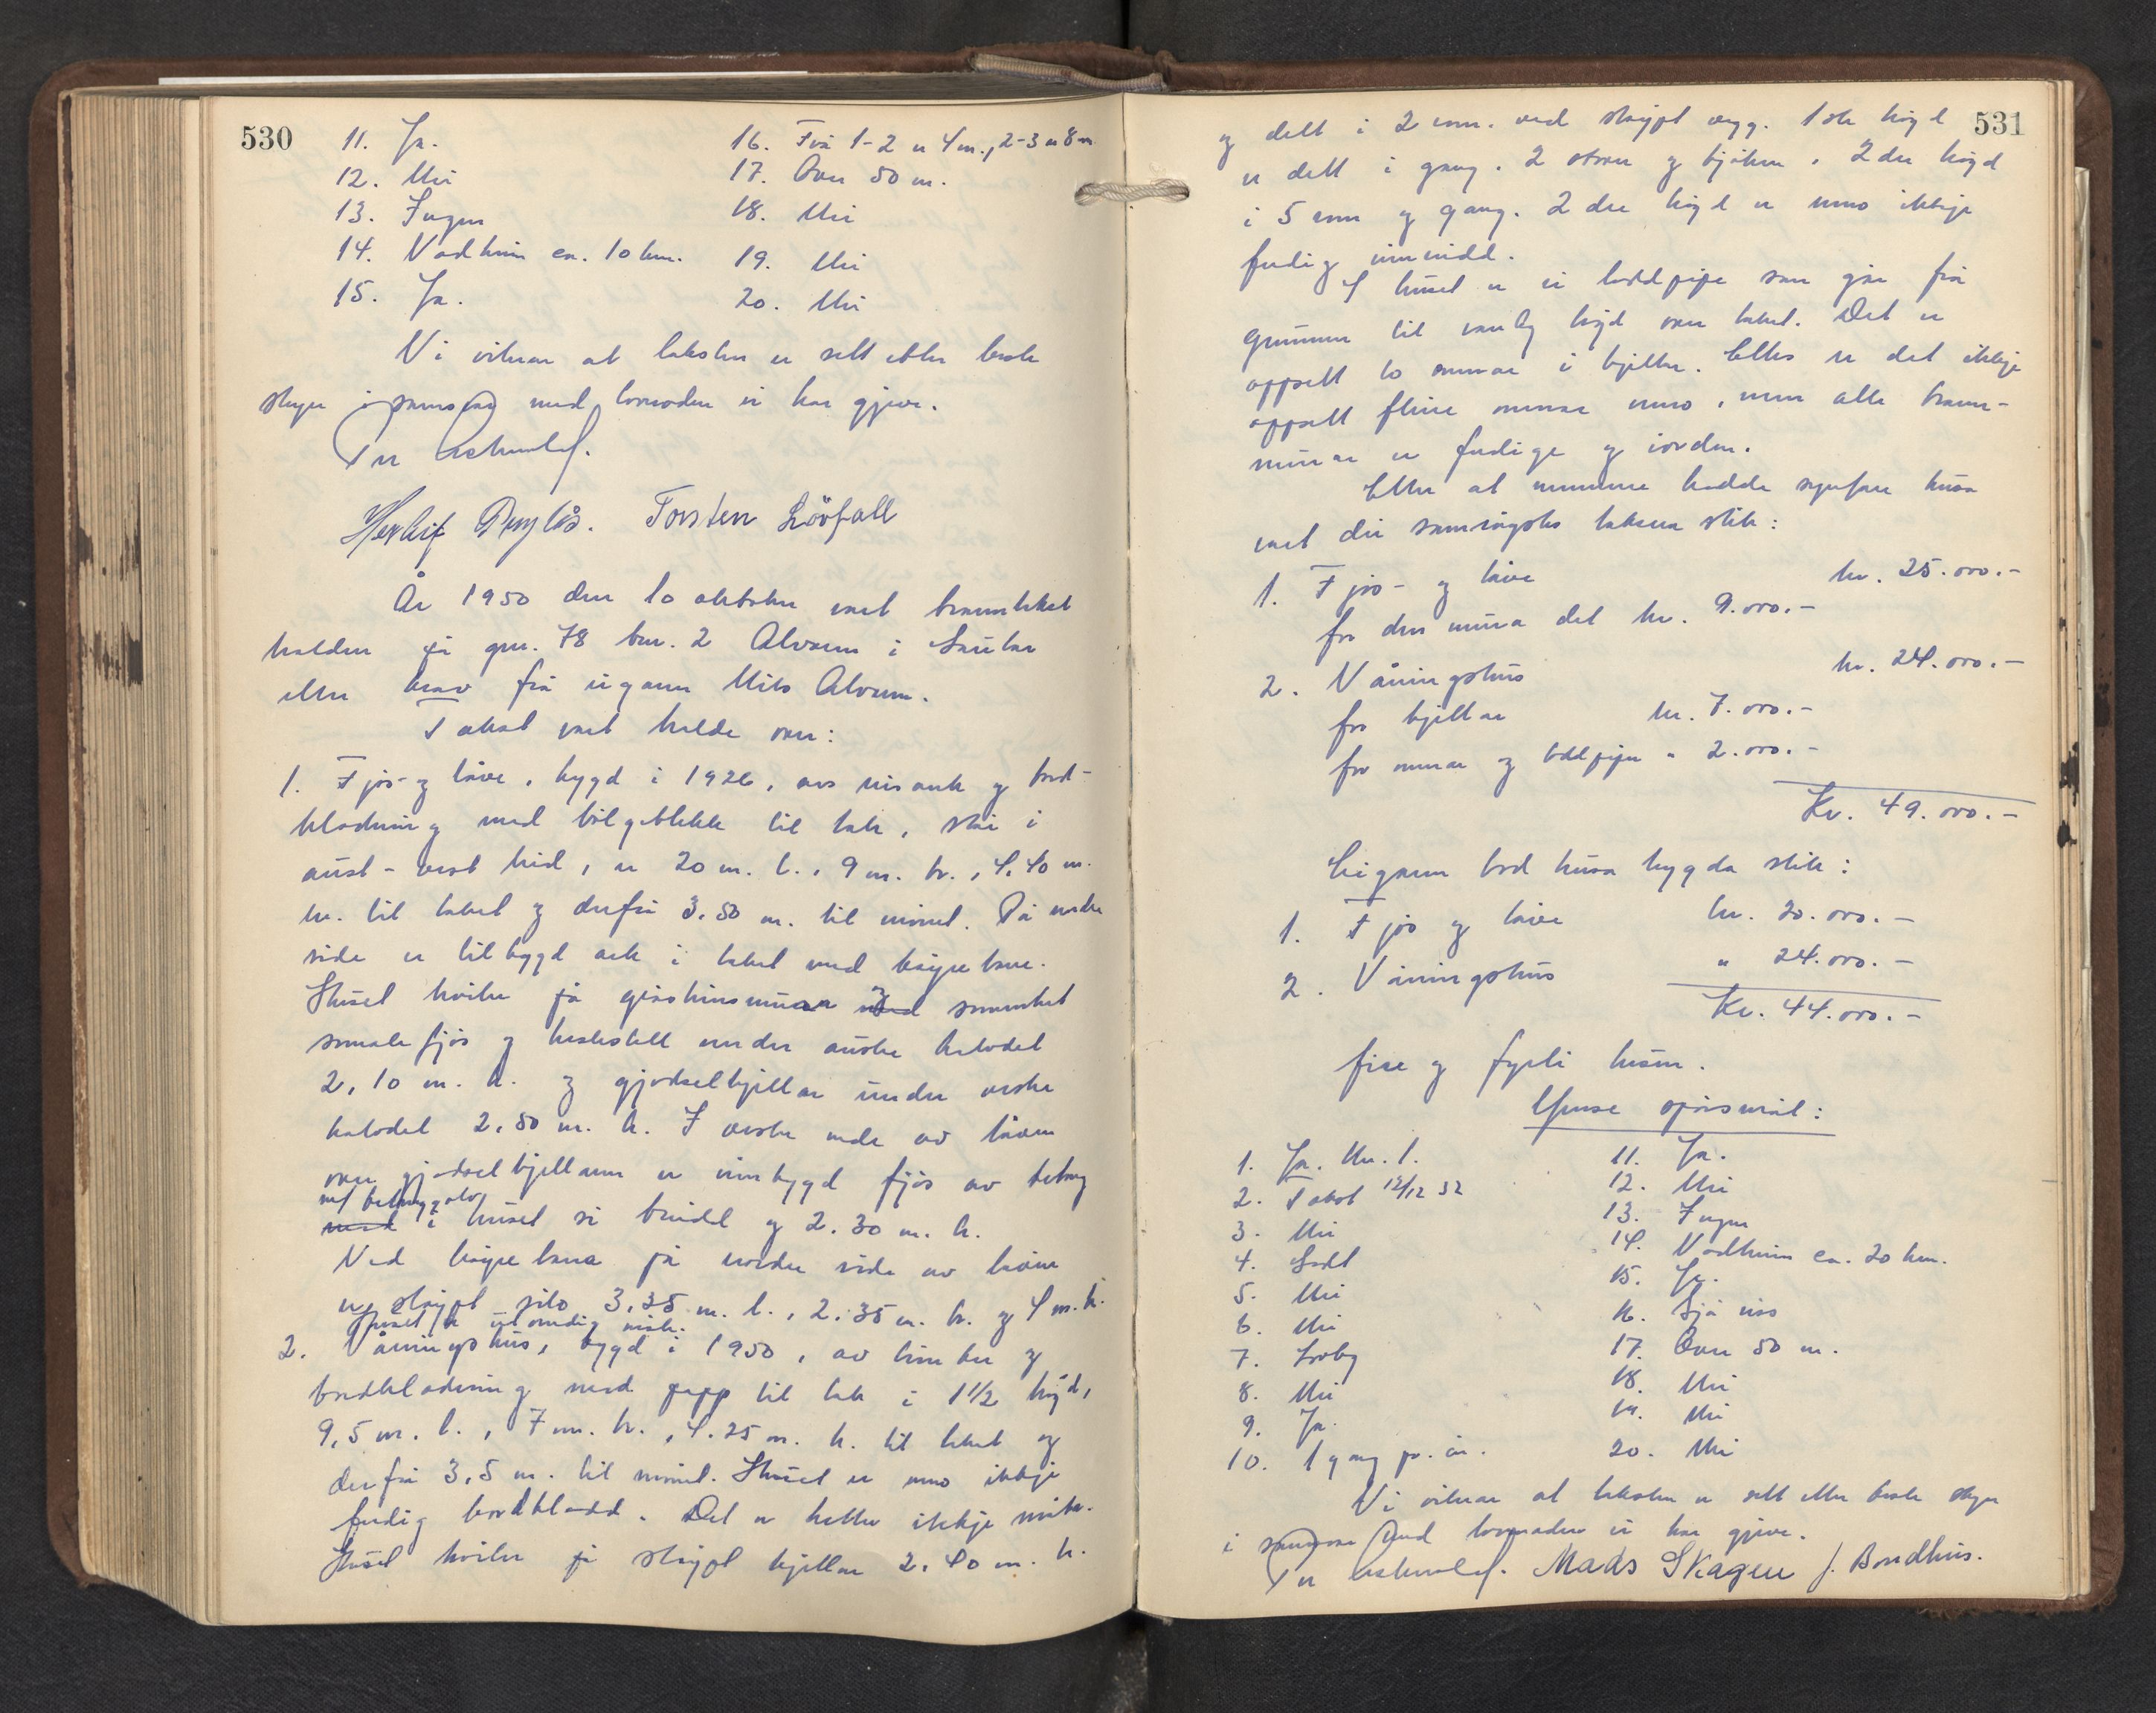 530
11. Ja.
12. Nei
13. Ingen
14. Vadheim ca. 10 km.
15. Ja.
16. Frå 1-2 er 4 m., 2-3 er 8 m
17. Over 50 m.
18. Nei
19. Nei
20. Nei
Vi vitnar at taksten er sett etter beste
skyn i samsvar med lovnaden vi har gjeve.
Per Aschvald.
Herleif Torsten Lövfall
År 1950 den 10 oktober vart branntakst
halden på gnr. 78 bnr. 2 Alvum i Lavik
etter krav frå eigaren Nils Alvum.
Takst vart halde over:
1. Fjøs- og låve, bygd i 1926, av reisverk og bord-
kledning med bølgeblekk til tak, står i
aust-vest leid, er 20 m. l., 9 m. br., 4,40 m.
h. til taket og derfrå 3,50 m. til mønet. På nordre
side er tilbygd ark i taket med køyrebru.
Huset kviler på gråsteinsmurar og sementert
smalefjøs og hestestall under austre halvdel
2,10 m. h. og gjødselkjellar under vestre
halvdel 2,50 m. h. I vestre ende av låven
over gjødselkjellaren er innbygd fjøs av betong
m/ betonggolv
i huset si breidd og 2.30 m. h.
Ved køyrebrua på nordre side av låven
er støypt silo 3,35 m. l., 2,35 m. br. og 4 m. h.
Huset er utvendig målt.
2. Våningshus, bygd i 1950, av timber og
bordkledning med papp til tak i 1 1/2 høgd,
9,5 m. l., 7 m. br., 4.25 m. h. til taket og
derfrå 3,5 m. til mønet. Huset er enno ikkje
ferdig bordkledd. Det er heller ikkje måla.
Huset kviler på støypt kjellar 2,40 m. h.
531
og delt i 2 rom ved støypt vegg. 1ste høgd
er delt i gang, 2 stover og kjøken, 2dre høgd
i 5 rom og gang. 2dre høgd er enno ikkje
ferdig innreidd.
I huset er ei loddpipe som går frå
grunnen til vanleg høgd over taket. Det er
oppsett to omnar i kjellar. Elles er det ikkje
oppsett fleire omnar enno, men alle brann-
murar er ferdige og i orden.
Etter at nemnda hadde synfare husa
vart dei samrøystes taksera slik:
1. Fjøs- og låve kr. 25.000.-
for den mura del kr. 9.000.-
2. Våningshus kr. 24.000.-
for kjellar kr. 7.000.-
for omnar og loddpipe " 2.000.-
Kr. 49.000.-
Eigaren bad husa trygda slik:
1. Fjøs og låve kr. 20.000.-
2. Våningshus " 24.000.-
Kr. 44.000.-
fire og fyrti tusen.
Ymse spörsmål:
1. Ja. Nr. 1.
2. Takst 12/12 32
3. Nei
4. Godt
5. Nei
6. Nei
7. Lovleg
8. Nei
9. Ja.
10. 1 gang pr. år.
11. Ja.
12. Nei
13. Ingen
14. Vadheim ca. 20 km.
15. Ja.
16. Sjå riss
17. Over 50 m.
18. Nei
19. Nei
20. Nei
Vi vitnar at taksten er sett etter beste skyn
i samsvar med lovnaden vi har gjeve.
Per Aschvald. Mads Skagen J. Bondhus.